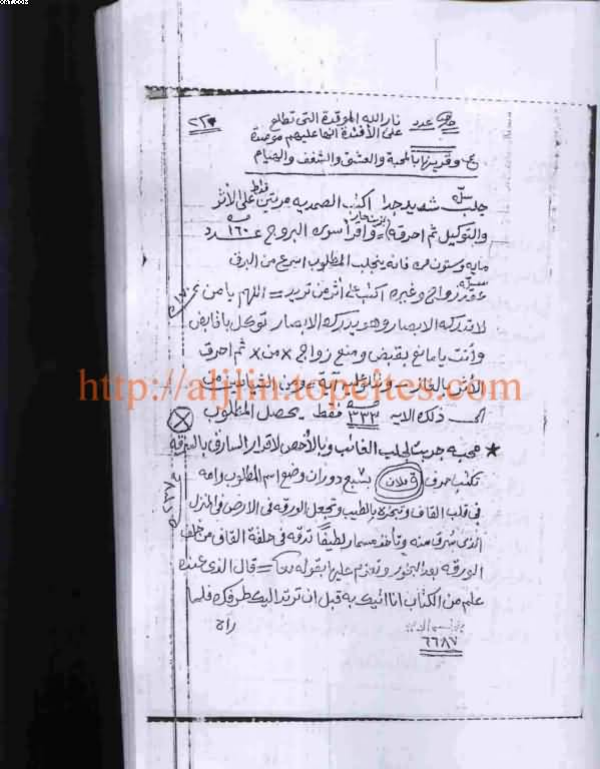 عدد نار الله الموقدة التى تطلع ٢٢٣
على الأفئدة انها عليهم موصدة
وقرينها بالمحبة والعشق والشغف والهيام
جلب شديد جدا اكتب الصمديه مرتين فقط على الأثر
والتوكيل ثم احرقه واقرأ سورة البروج عدد ١٦٠
مايه وستون مره فانه ينجلب المطلوب اسرع من البرق
عقد زواج وغيره اكتب على أثر من تريد = اللهم يا من
لا تدركه الابصار وهو يدرك الابصار توكل يا قابض
وأنت يا مانع بقبض ومنع زواج × من × ثم احرق
الأثر بالنار
ذلك الايه ٣٣٣ فقط يحصل المطلوب
* محبه جربت لجلب الغائب وبالأخص لاقرار السارق بالسرقه
تكتب حرف ق فلان بسبع دورات وضع اسم المطلوب وامه
فى قلب القاف وتبخره بالطيب وتجعل الورقه فى الارض فى المنزل
الذى سرق منه وتأخذ مسمار لطيفا تدقه فى حلقة القاف من خلف
الورقه بعد البخور وتعزم عليها بقوله تعا = قال الذى عنده
علم من الكتاب انا اتيك به قبل ان يرتد اليك طرفك فلما
راه
٦٦٨٧
http://aljin.topcites.com